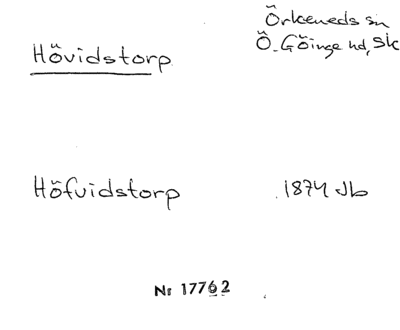 Hövidstorp
Örkeneds sn
Ö. Göinge hd, Sk
Höfvidstorp
1874 Jb
Nr 17762